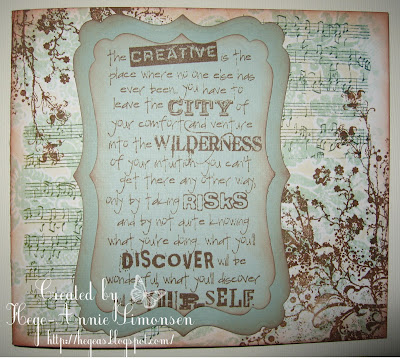 the CREATIVE is the
place where no one else has
ever been. you have to
leave the CITY of
your comfort and venture
into the WILDERNESS
of your intuition. you can't
get there any other way,
only by taking RISKS
and by not quite knowing
what you're doing. what you'll
DISCOVER will be
wonderful. what you'll discover
SELF
Created by
Hege-Annie Simonsen
http://hegeas.blogspot.com/